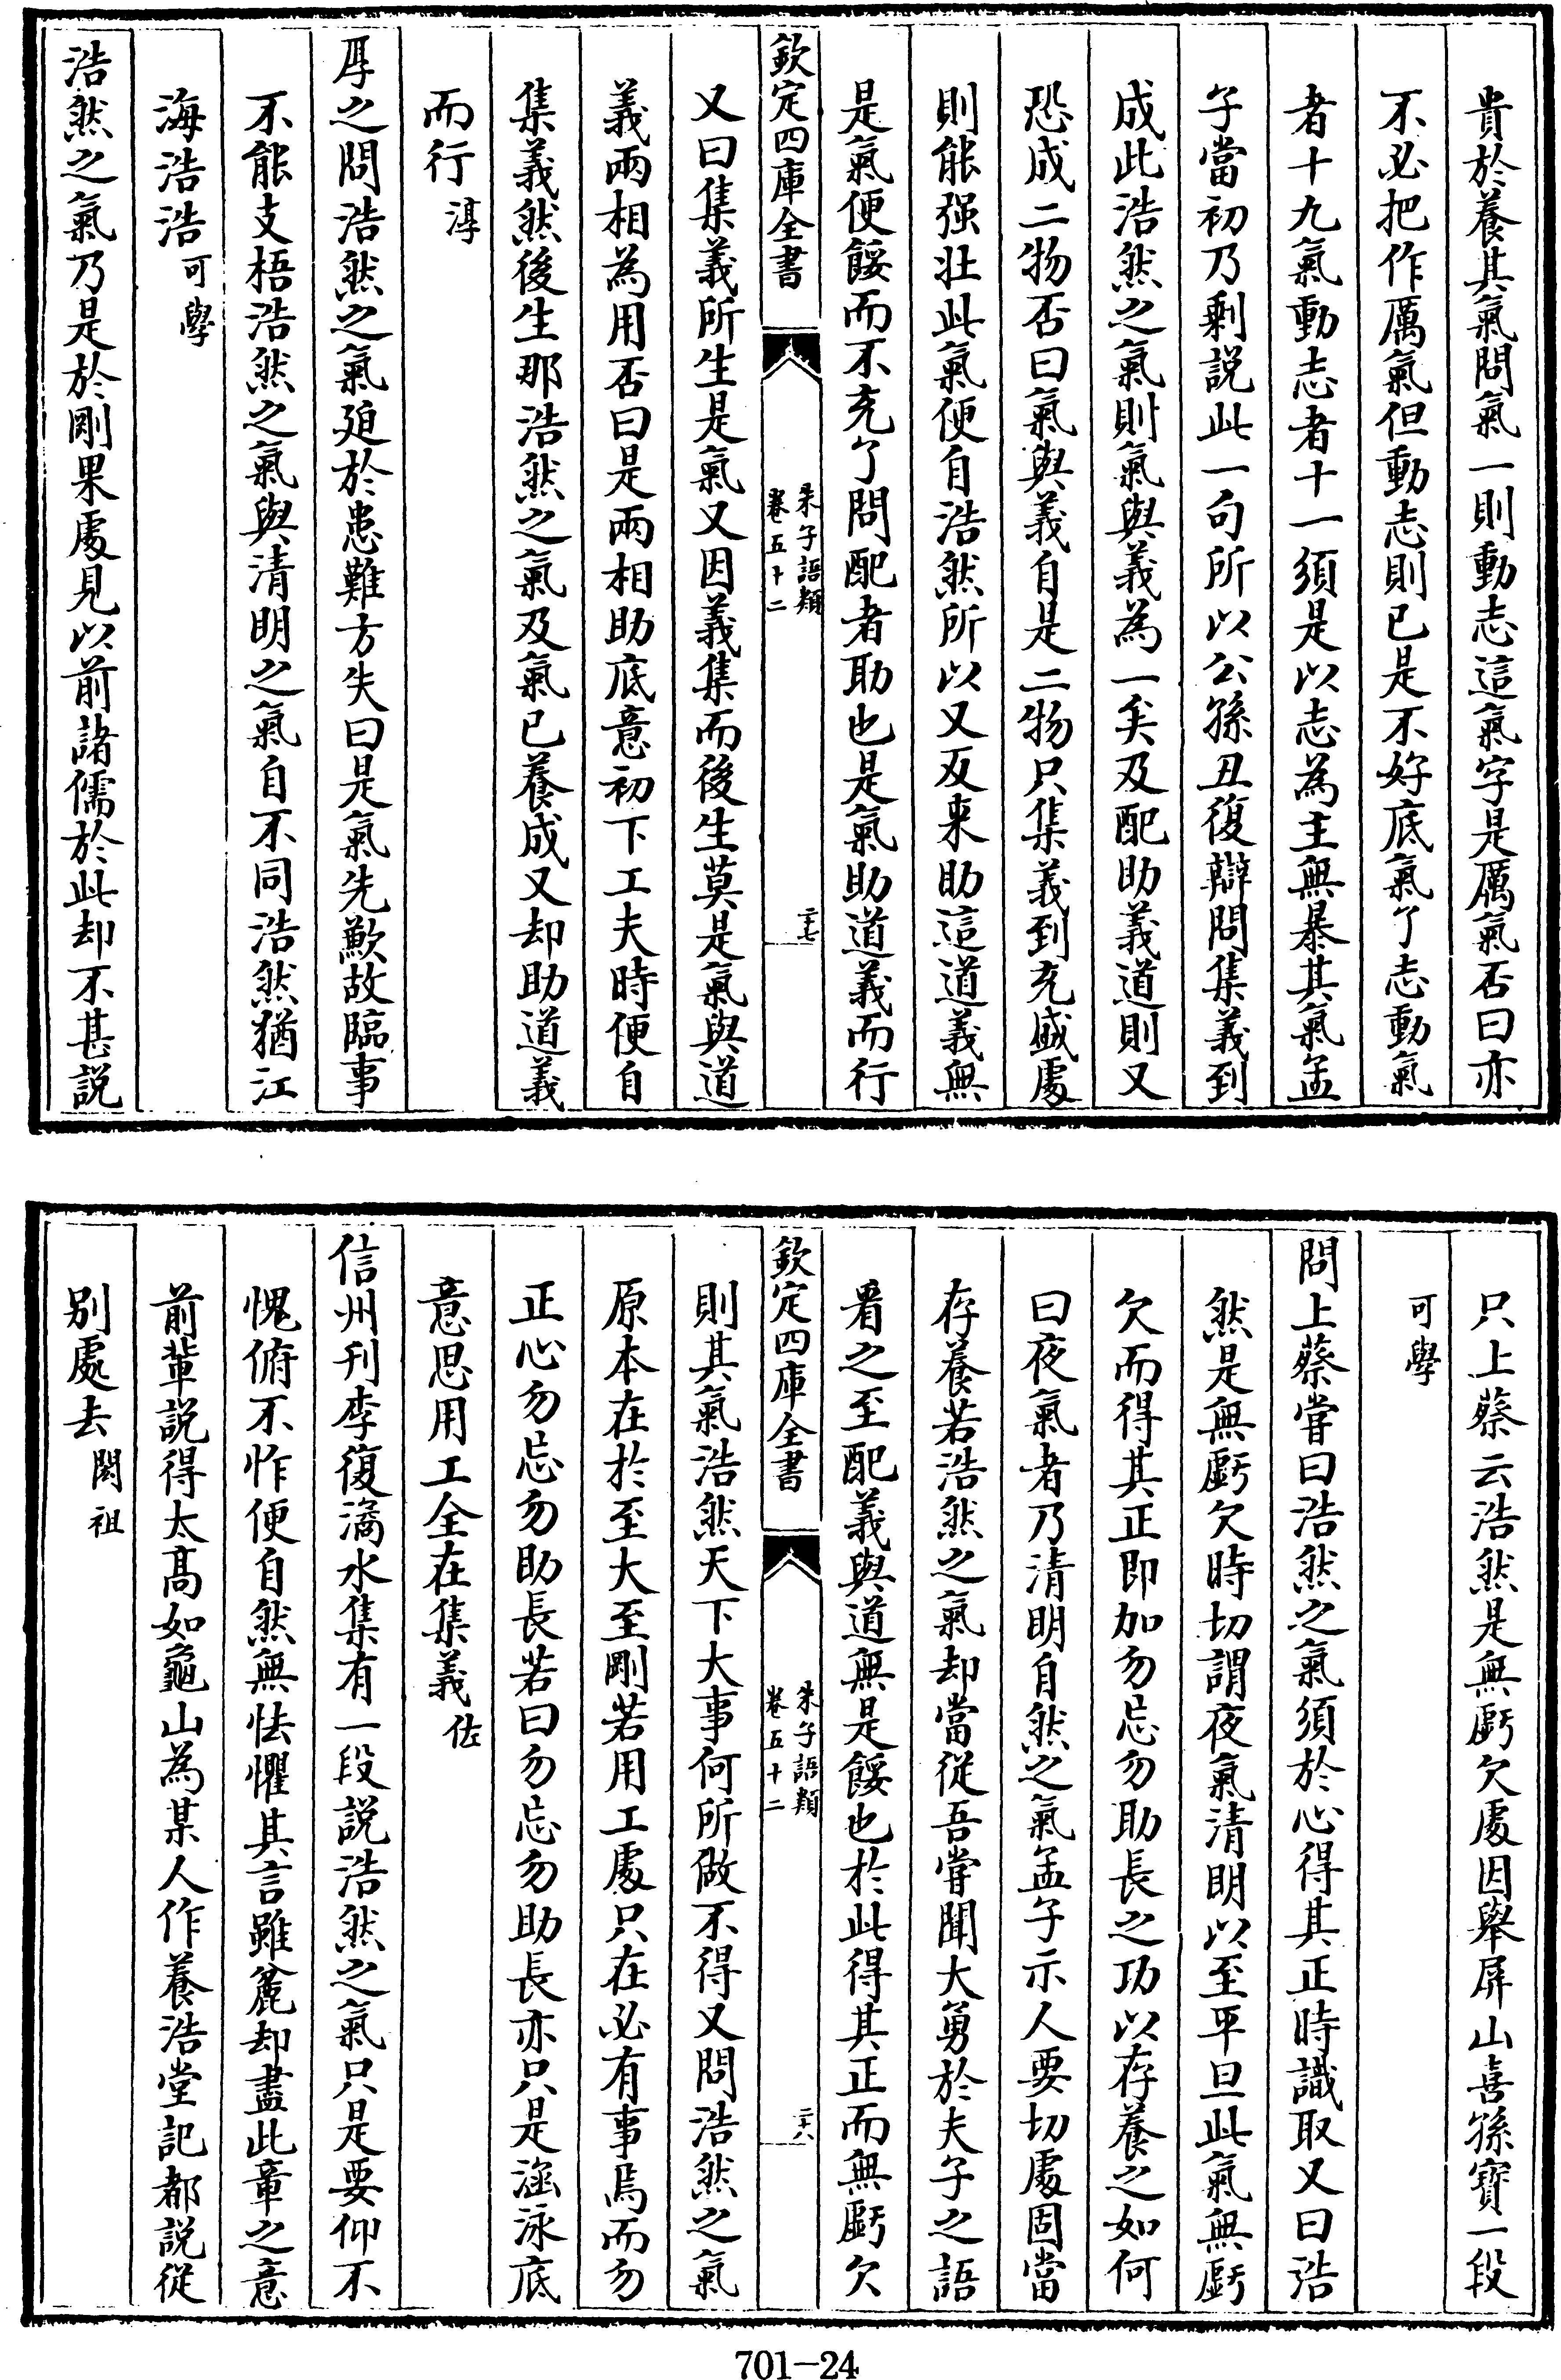 貴於養其氣問氣一則動志這氣字是厲氣否曰亦
不必把作厲氣但動志則已是不好底氣了志動氣
者十九氣動志者十一須是以志為主無暴其氣孟
子當初乃剰説此一句所以公孫丑復辯問集義到
成此浩然之氣則氣與義為一矣及配助義道則又
恐成二物否曰氣與義自是二物只集義到充盛處
則能强壯此氣便自浩然所以又反來助這道義無
是氣便餒而不充了問配者助也是氣助道義而行
欽定四庫全書
朱子語類
卷五十二
二十七
又曰集義所生是氣又因義集而後生莫是氣與道
義兩相為用否曰是兩相助底意初下工夫時便自
集義然後生那浩然之氣及氣已養成又却助道義
而行淳
厚之問浩然之氣廹於患難方失曰是氣先歉故臨事
不能支梧浩然之氣與清明之氣自不同浩然猶江
海浩浩可學
浩然之氣乃是於剛果處見以前諸儒於此却不甚説
只上蔡云浩然是無虧欠處因舉屏山喜孫寳一段
可學
問上蔡嘗曰浩然之氣須於心得其正時識取又曰浩
然是無虧欠時切謂夜氣清明以至平旦此氣無虧
欠而得其正即加勿忘勿助長之功以存養之如何
曰夜氣者乃清明自然之氣孟子示人要切處固當
存養若浩然之氣却當從吾嘗聞大勇於夫子之語
看之至配義與道無是餒也於此得其正而無虧欠
欽定四庫全書
朱子語類
卷五十二
二十八
則其氣浩然天下大事何所做不得又問浩然之氣
原本在於至大至剛若用工處只在必有事焉而勿
正心勿忘勿助長若曰勿忘勿助長亦只是涵泳底
意思用工全在集義佐
信州刋李復潏水集有一段説浩然之氣只是要仰不
愧俯不怍便自然無怯懼其言雖麄却盡此章之意
前軰説得太髙如龜山為某人作養浩堂記都説從
别處去閎祖
701—24